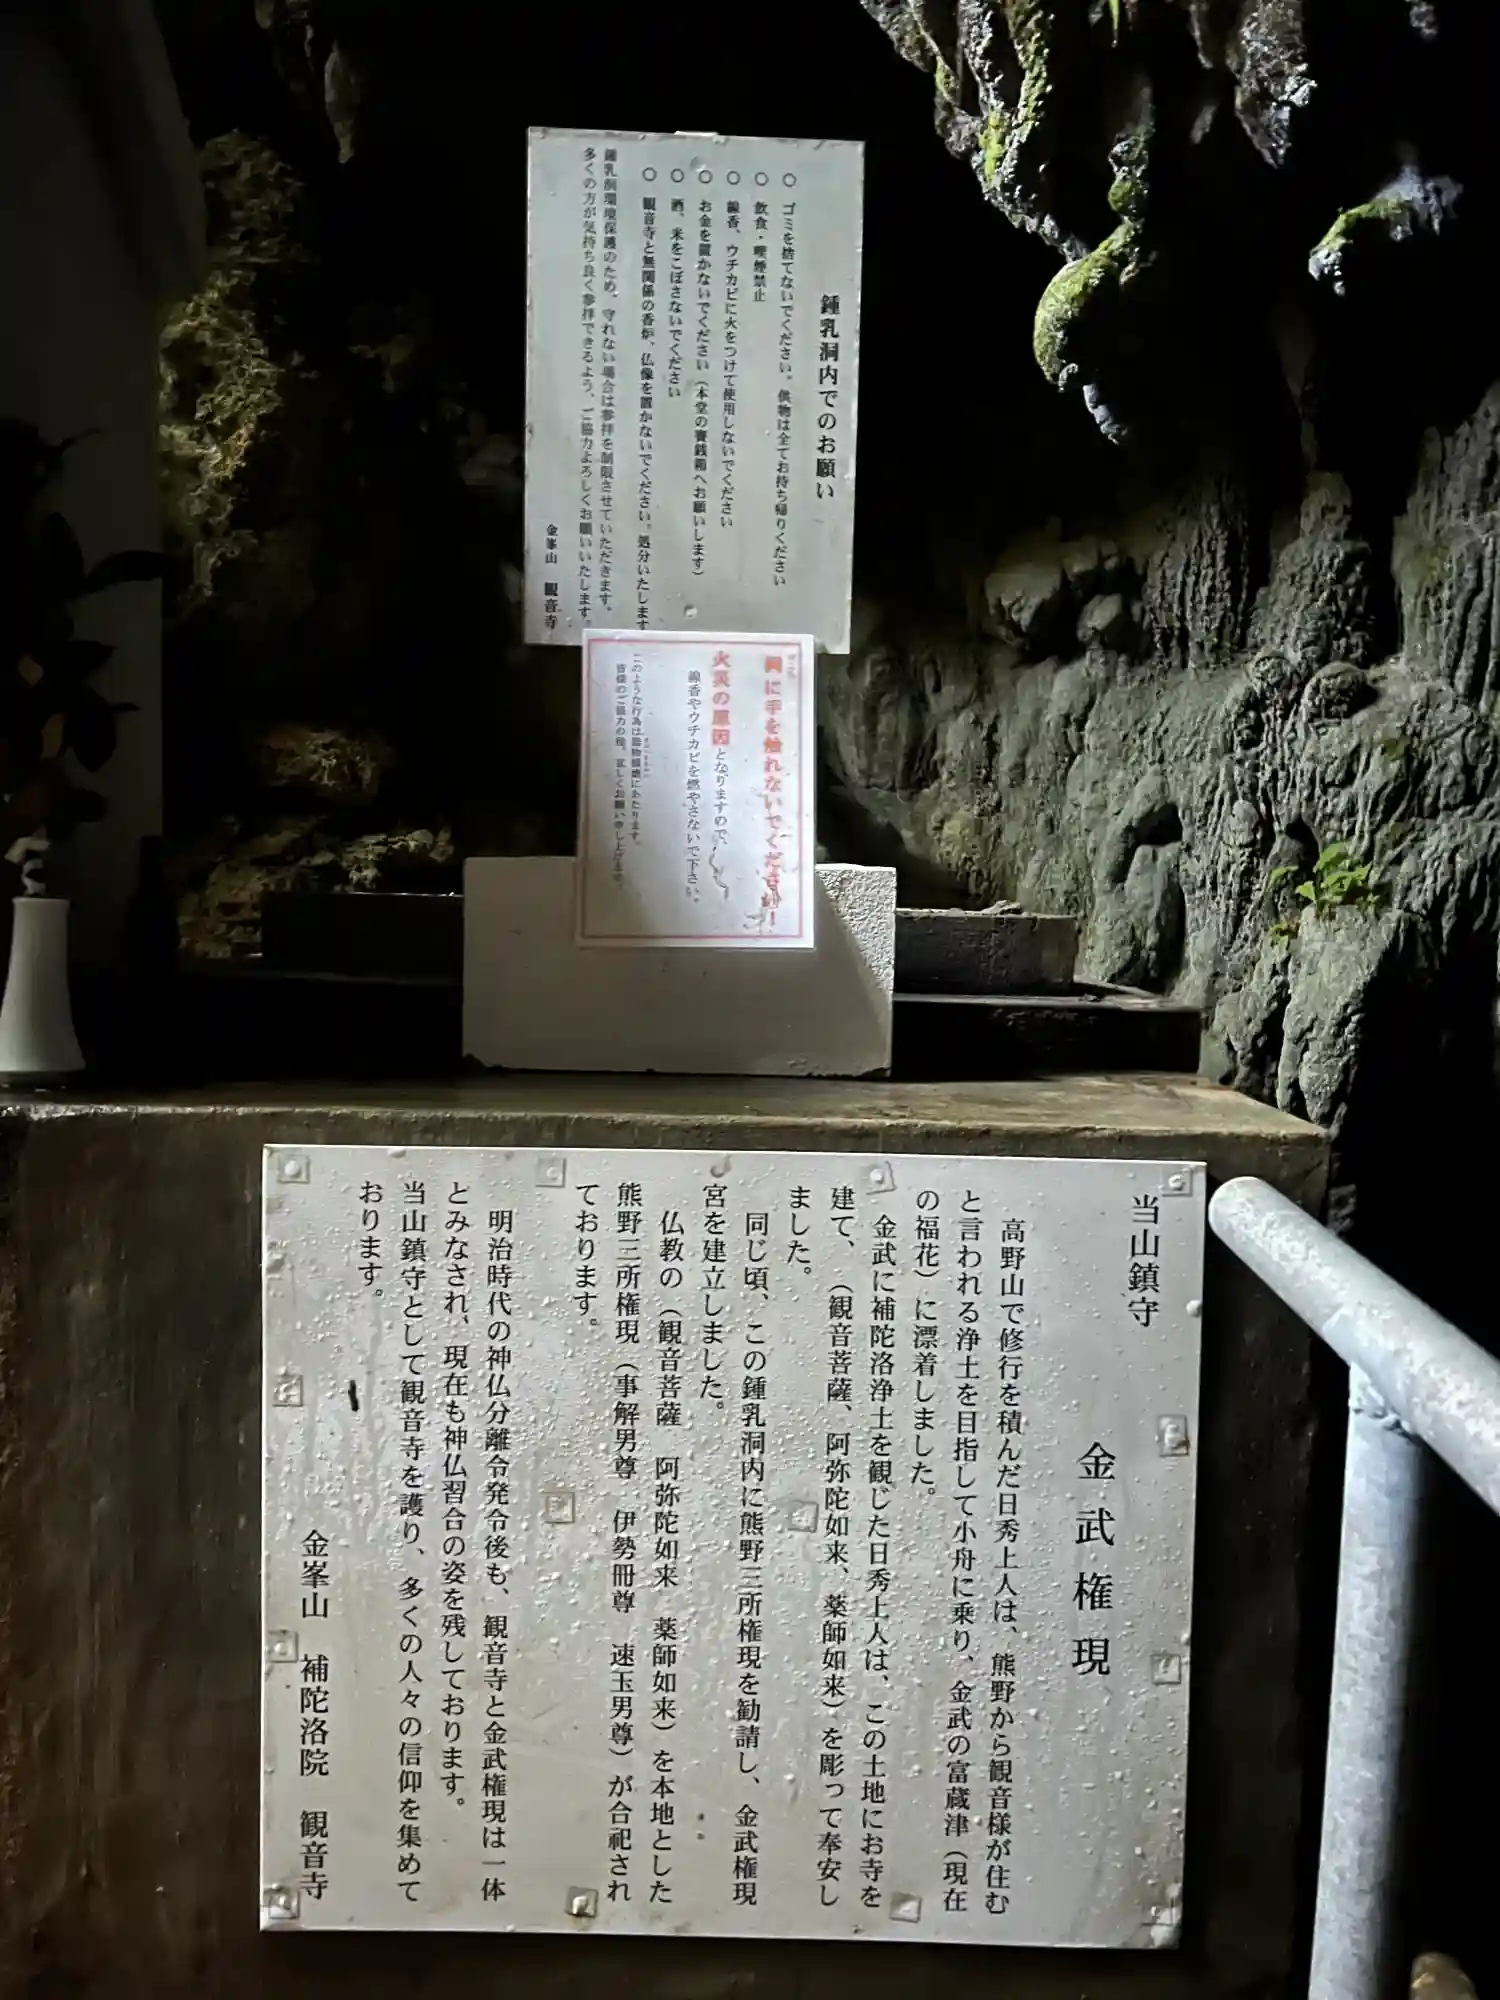 鍾乳洞内でのお願い
○ ゴミを捨てないでください。供物は全てお持ち帰りください
○ 飲食・喫煙禁止
○ 線香、ウチカビに火をつけて使用しないでください
○ お金を置かないでください(本堂の賽銭箱へお願いします)
○ 酒、米をこぼさないでください
○ 観音寺と無関係の香炉、仏像を置かないでください。処分いたします
鍾乳洞環境保護のため、守れない場合は参拝を制限させていただきます。
多くの方が気持ち良く参拝できるよう、ご協力よろしくお願いいたします。
金峯山 観音寺
に手を触れないでください!
火災の原因となりますので、
線香やウチカビを燃やさないで下さい。
このような行為は器物損壊にあたります。
皆様のご協力の程、宜しくお願い申し上げます。
当山鎮守
金武権現
高野山で修行を積んだ日秀上人は、熊野から観音様が住む
と言われる浄土を目指して小舟に乗り、金武の富蔵津(現在
の福花)に漂着しました。
金武に補陀洛浄土を観じた日秀上人は、この土地にお寺を
建て、(観音菩薩、阿弥陀如来、薬師如来)を彫って奉安し
ました。
同じ頃、この鍾乳洞内に熊野三所権現を勧請し、金武権現
宮を建立しました。
仏教の(観音菩薩 阿弥陀如来 薬師如来)を本地とした
熊野三所権現(事解男尊 伊勢冊尊 速玉男尊)が合祀され
ております。
明治時代の神仏分離令発令後も、観音寺と金武権現は一体
とみなされ、現在も神仏習合の姿を残しております。
当山鎮守として観音寺を護り、多くの人々の信仰を集めて
おります。
金峯山 補陀洛院 観音寺